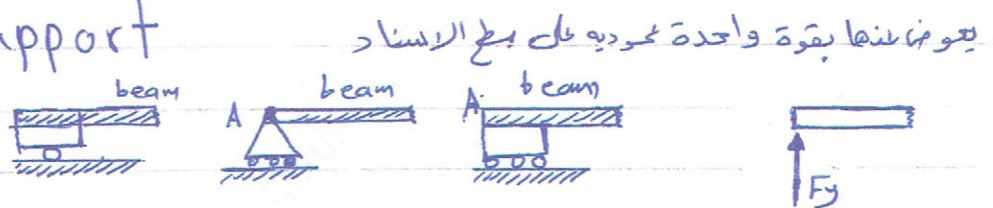 pport
يعوض عنها بقوة واحدة عمودية على سطح الاسناد
beam
A beam
A beam
Fy